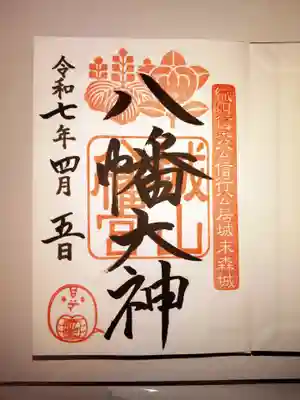 織田信秀公信行公居城末森城
八幡大神
城山
八幡宮
令和七年四月五日